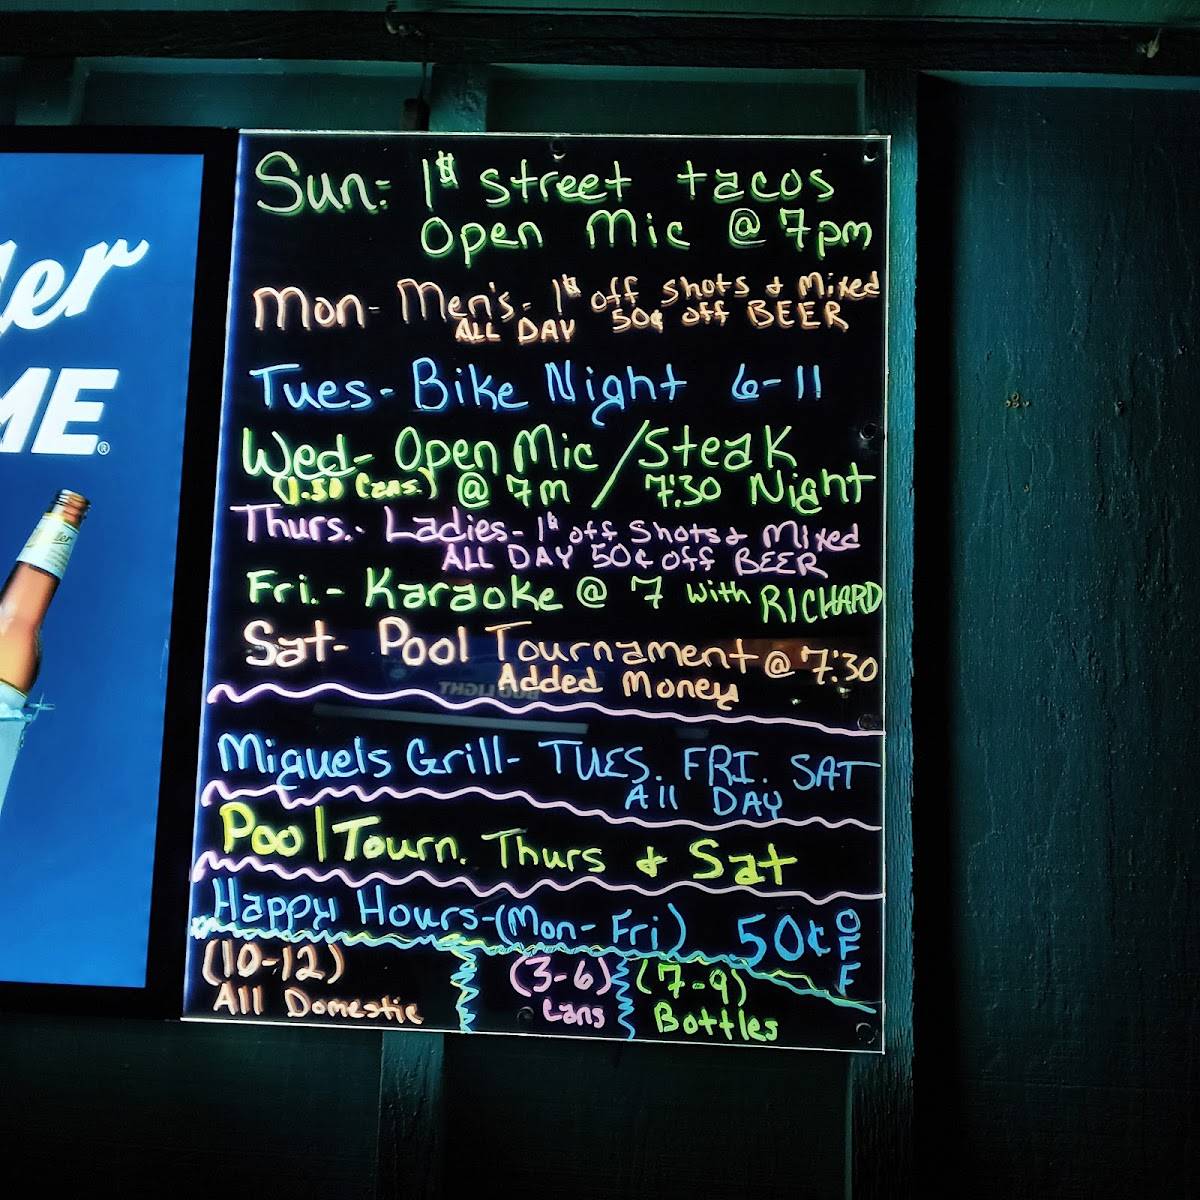 Sun: 1$ street tacos
Open Mic @ 7pm
Mon- Men's- 1$ off shots & Mixed
ALL DAY 50¢ off BEER
Tues- Bike Night 6-11
Wed- Open Mic / Steak
(1.50 Cans.) @ 7m / 7:30 Night
Thurs.- Ladies- 1$ off Shots & Mixed
ALL DAY 50¢ off BEER
Fri.- Karaoke @ 7 with RICHARD
Sat- Pool Tournament @ 7:30
Added Money
BUD LIGHT
Miguels Grill- TUES. FRI. SAT
All DAY
Pool Tourn. Thurs & Sat
Happy Hours-(Mon-Fri) 50¢ OFF
(10-12) (3-6) (7-9)
All Domestic Cans Bottles
ler
ME®